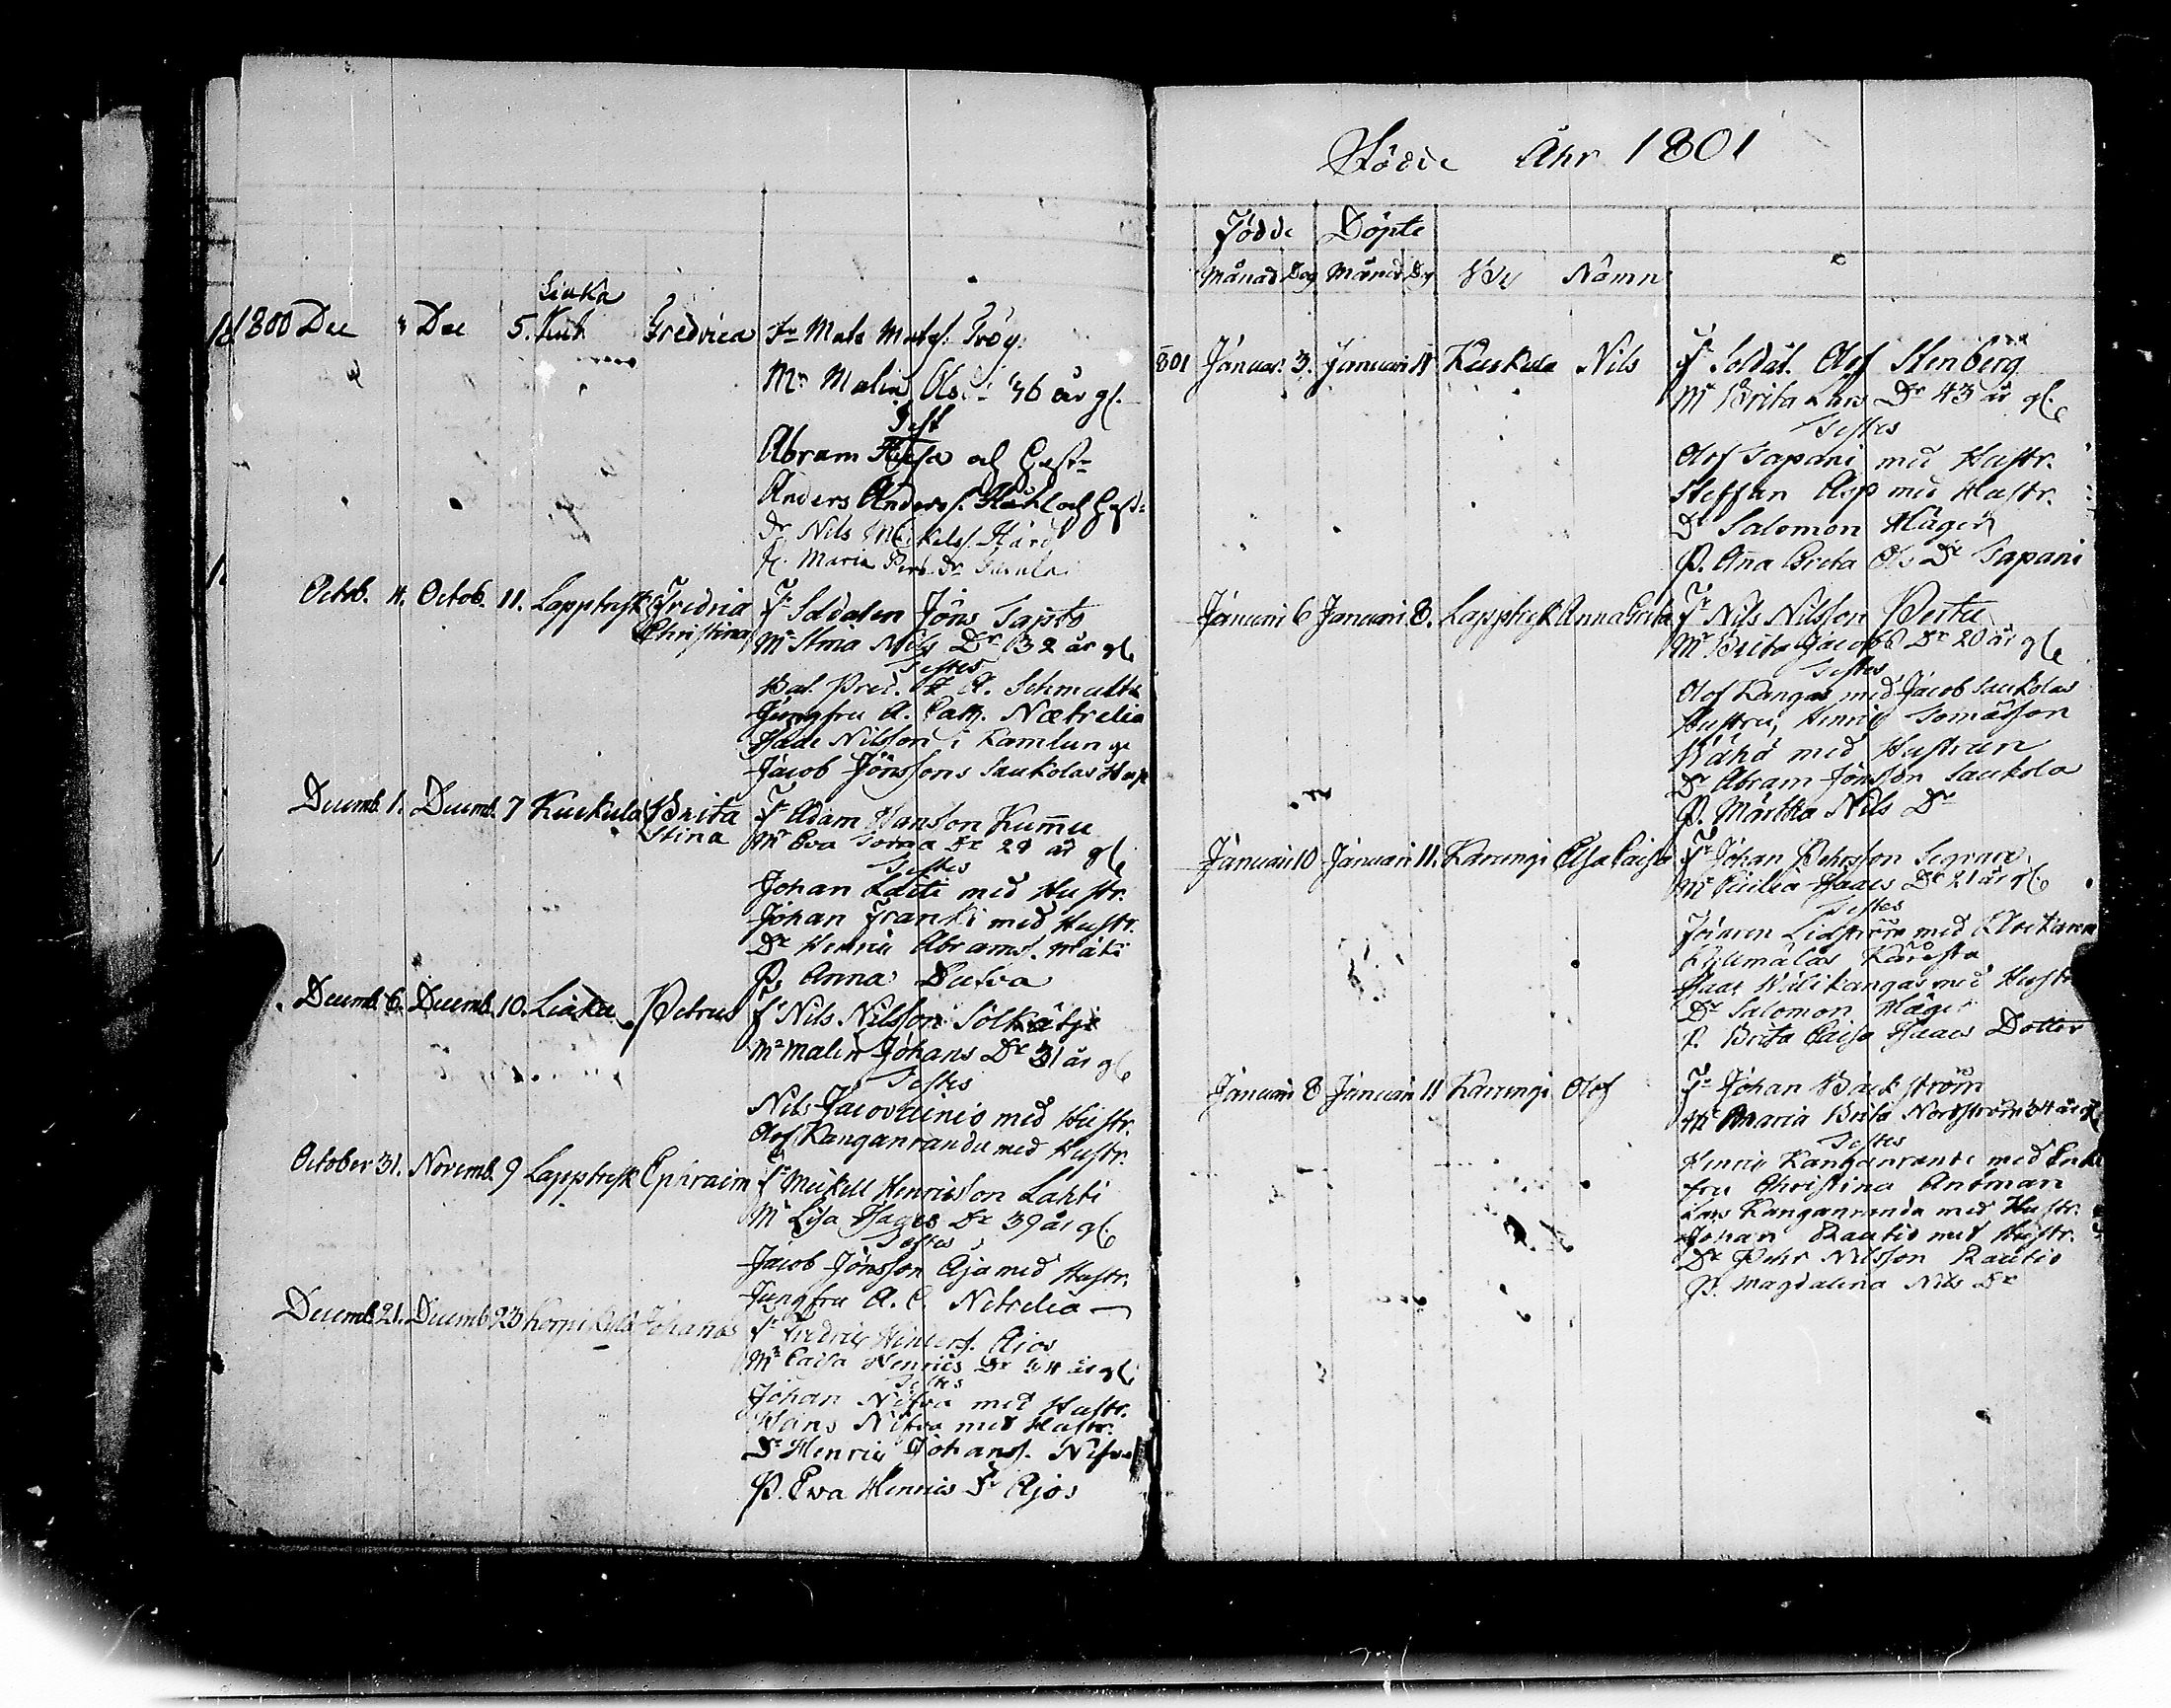 1800 Dec 3 Dec 5. Liaka Kut Fredrica Fr Mats Mats. Fröy.
Mr Malin Ols 36 år gl.
Test
Abram och Hustr
Anders Anderss. Ståhl och Hust
Dr Nils Mickelss. Hård
P. Maria Pers Dr
Octob. 4. Octob. 11. Lapptresk Fredrica Christina Fr Soldaten Jöns Tapto
Mr Stina Nils Dr 32 år gl.
Testes
Bat. Pred. A. Schmaltz
Jungfru A. Cath. Nætrelia
Isaac Nilsson i Kamlunge
Jacob Jönssons Saukolas Hust
Decemb. 1. Decemb. 7 Kuckula Brita Stina Fr Adam Hansson Kumu
Mr Eva Dr 29 år gl.
Testes
Johan Laiti med Hustr.
Johan Franki med Hustr.
Dr Henric Abrams. Mäki
P. Anna
Decemb. 6. Decemb. 10. Liaka Petrus Fr Nils Nilsson
Mr Malin Johans Dr 31 år gl.
Testes
Nils Jacob med Hustr.
Olof Kanganranda med Hustr.
October 31. Novemb. 9 Lapptresk Ephraim Fr Mickell Henricsson Lahti
Mr Lisa Isaacs Dr 39 år gl.
Testes
Jacob Jönsson Aja med Hustr.
Jungfru A. C. Netrelia
Decemb. 21. Decemb. 23 Korpikylä Johanes Fr Fredric Henricss. Ajos
Mr Caisa Henrics Dr 34 år gl.
Testes
Johan Nifva med Hustr.
Hans Nifva med Hustr.
Dr Henric Johanss. Nifva
P. Eva Henrics Dr Ajos
Födde Åhr 1801
Födde Döpte
Månad Dag Månad Dag By Namn
801 Januar. 3. Januari 4 Kuckula Nils Fr Soldat. Olof Stenberg
Mr Brita Lars Dr 43 år gl.
Testes
Olof Tapani med Hustr.
Steffan Asp med Hustr.
Dr Salomon Häger
P. Anna Greta Ols Dr Tapani
Januari 6 Januari 8. Lapptresk Anna Greta Fr Nils Nilsson Pertu
Mr Brita Jacobs Dr 20 år gl.
Testes
Olof Kangas med Jacob Saukolas
Hustru, Henric Tomasson
Wähä med Hustrun
Dr Abram Jönsson Saukola
P. Martha Nils Dr
Januari 10 Januari 11. Karungi Elsa Caisa Fr Johan Pehrsson
Mr Cecilia Isaacs Dr 21 år gl.
Testes
med
Isaac Wälikangas med Hustr
Dr Salomon Häger
P. Brita Caisa Isaacs Dotter
Januari 8 Januari 11 Karungi Olof Fr Johan Bäckström
Mr Maria Brita Nordström 34 år gl.
Testes
Henric Kanganrante med Enke
fru Christina Antman
Lars Kanganranda med Hustr.
Johan Rautio med Hustr.
Dr Pehr Nilsson Rautio
P. Magdalena Nils Dr